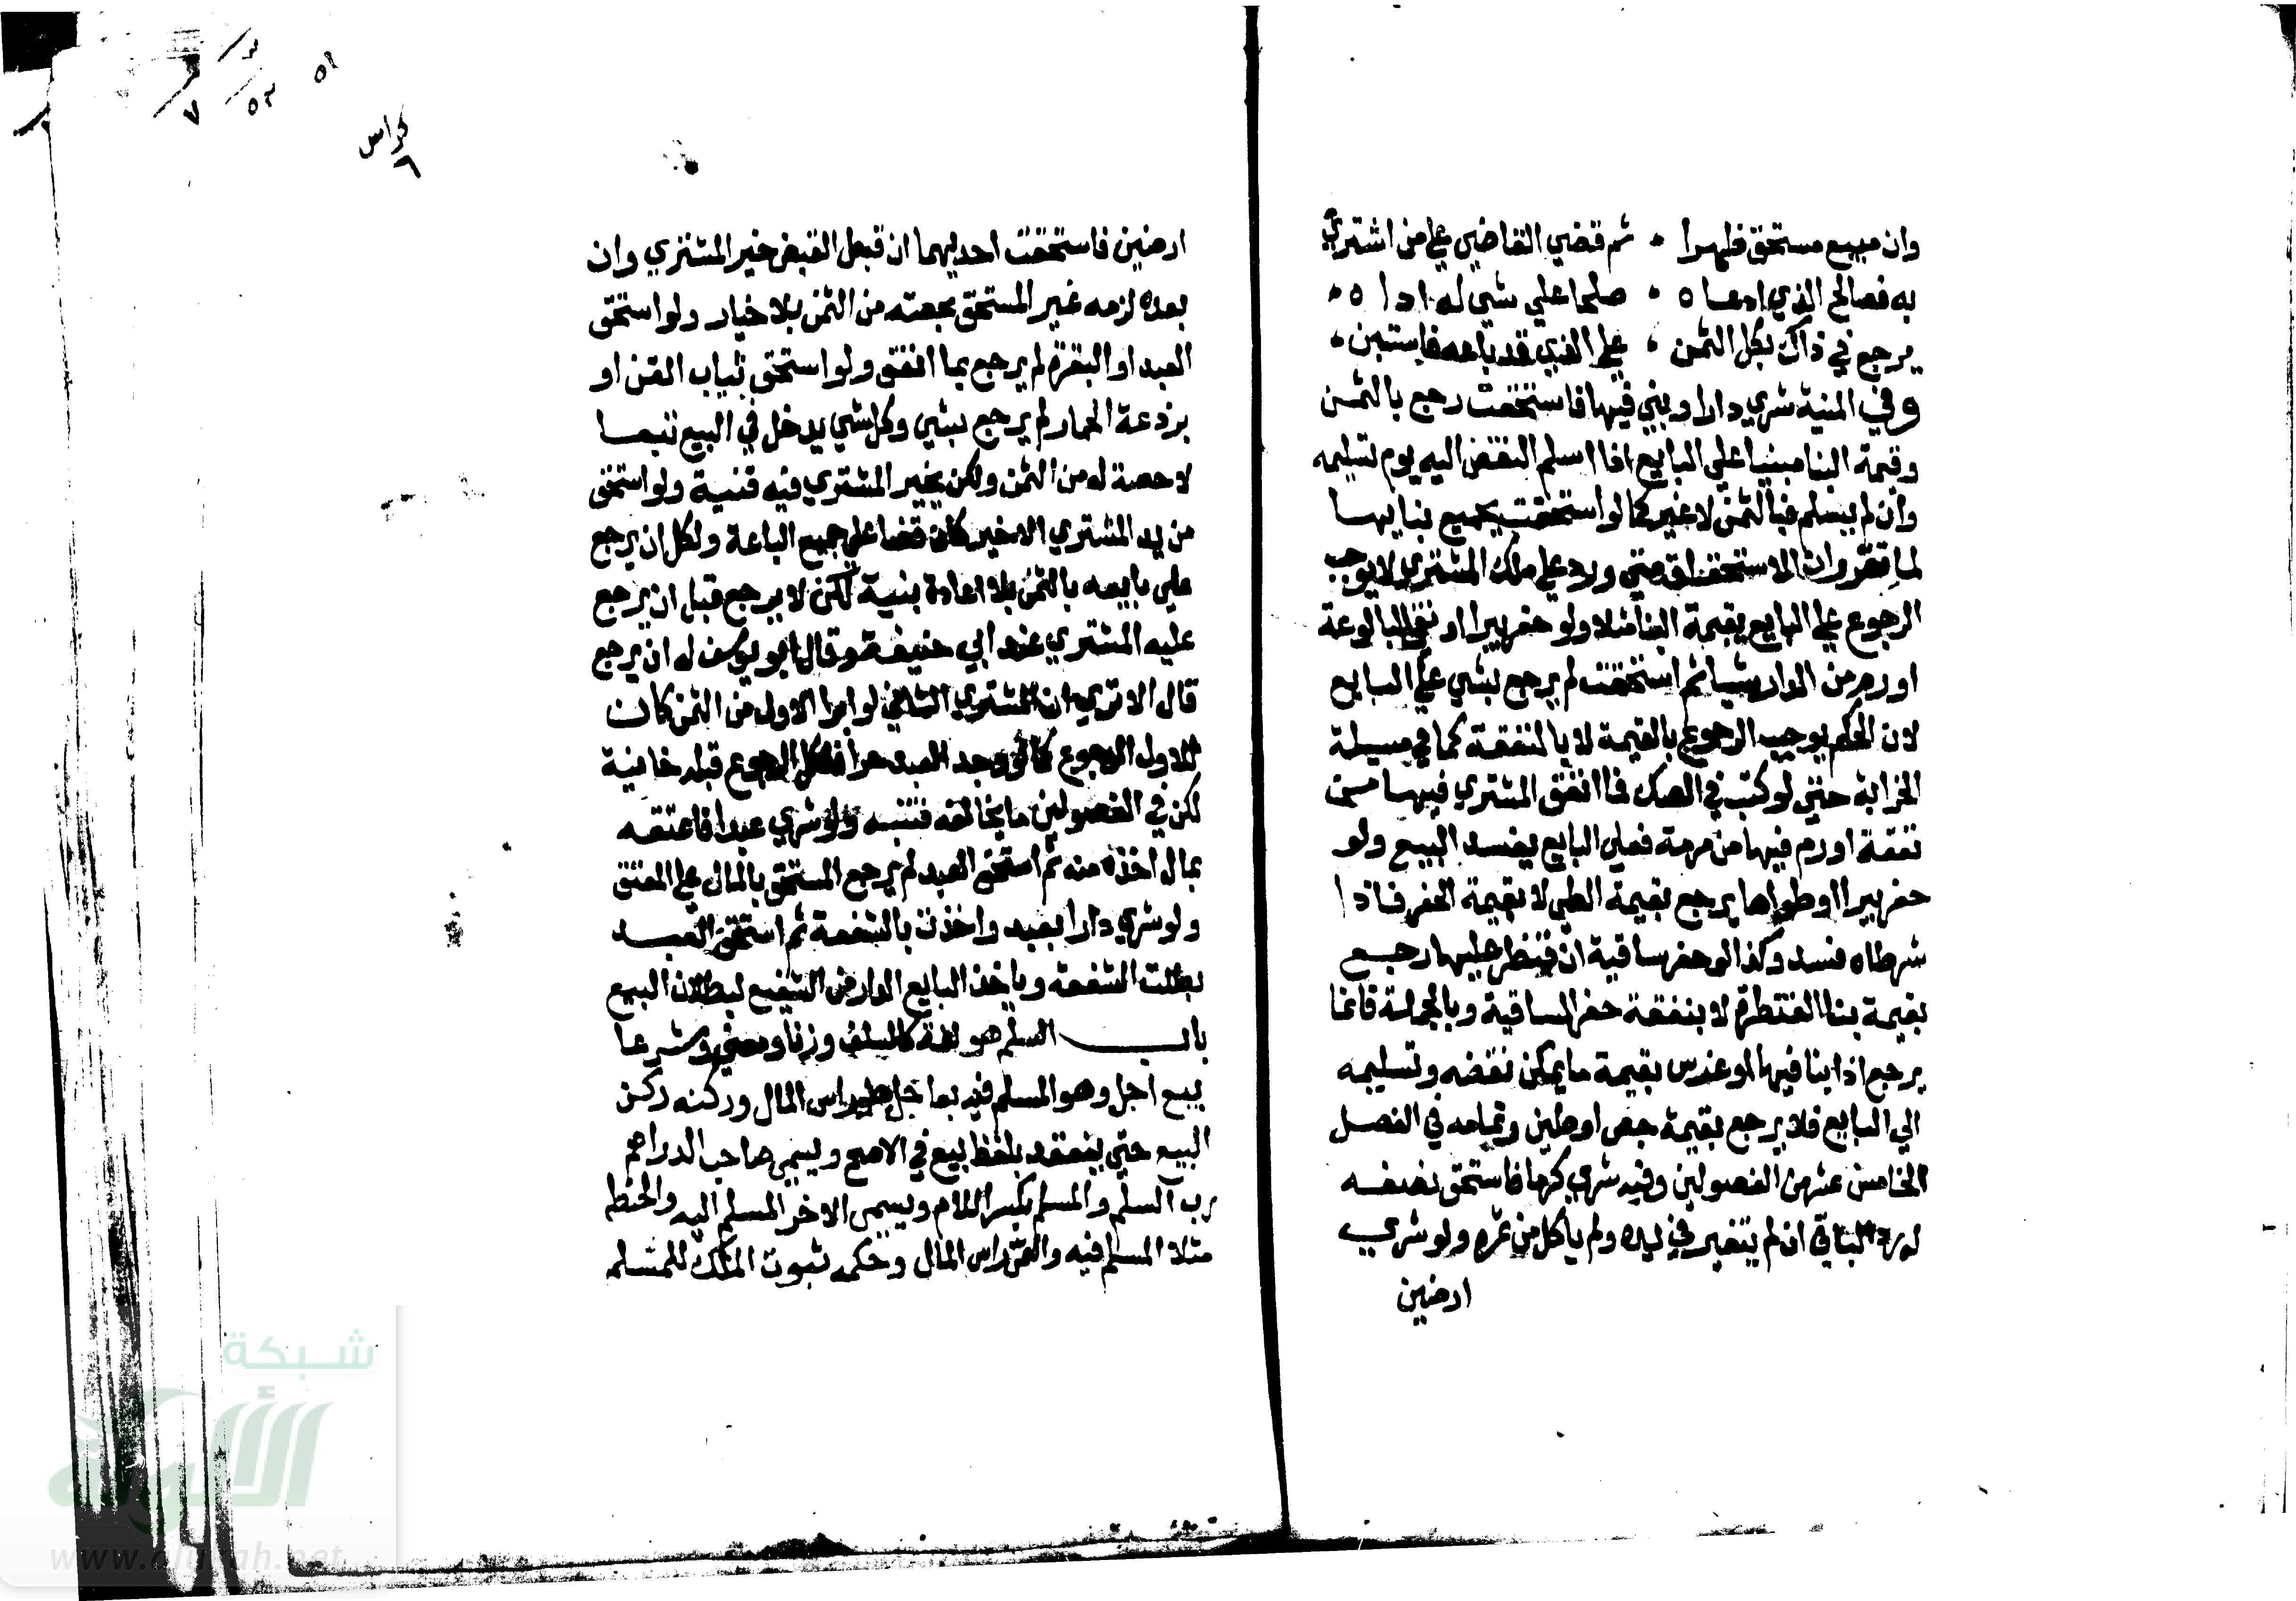 وان مبيع مستحق ظهرا • ثم قضي القاضي علي من اشتري
به فصالح الذي ادعاه • صلحا علي شي له اداه •
يرجع في ذاك بكل الثمن • علي الذي قد باعه فاستبن •
وفي المنية شري دارا وبني فيها فاستحقت رجع بالثمن
وقيمة البنا مبنيا علي البايع اذا سلم النقض اليه يوم تسليمه
وان لم يسلم فبالثمن لا غير كما لو استحقت بجميع بنايها
لما تقرر ان الاستحقاق متي ورد علي ملك المشتري لا يوجب
الرجوع علي البايع بقيمة البنا مثلا ولو حفر بيرا او نقي البالوعة
او رم من الدار شيا ثم استحقت لم يرجع بشي علي البايع
لان الحكم يوجب الرجوع بالقيمة لا بالنفقة كما في مسيلة
الخرابة حتي لو كتب في الصك فما انفق المشتري فيها من
نفقة او رم فيها من مرمة فعلي البايع يفسد البيع ولو
حفر بيرا او طواها يرجع بقيمة الطي لا بقيمة الحفر فاذا
شرطاه فسد وكذا لو حفر ساقية ان قنطر عليها رجع
بقيمة بنا القنطرة لا بنفقة حفر الساقية وبالجملة فانما
يرجع اذا بنا فيها او غرس بقيمة ما يمكن نقضه وتسليمه
الي البايع فلا يرجع بقيمة جص اوطين وتمامه في الفصل
الخامس عشر من الفصولين وفيه شري كرما فاستحق نصفه
له رد الباقي ان لم يتغير في يده ولم ياكل من ثمره ولو شري
ارضين
٥١
٥٢
٧
كراس
٦
ارضين فاستحقت احديهما ان قبل القبض خير المشتري وان
بعده لزمه غير المستحق بحصته من الثمن بلا خيار ولو استحق
العبد او البقرة لم يرجع بما انفق ولو استحق ثياب القن او
برذعة الحمار لم يرجع بشي وكل شي يدخل في البيع تبعا
لا حصة له من الثمن ولكن يخير المشتري فيه قنية ولو استحق
من يد المشتري الاخير كان قضا علي جميع الباعة ولكل ان يرجع
علي بايعه بالثمن بلا اعادة بنية لكن لا يرجع قبل ان يرجع
عليه المشتري عند ابي حنيفة وقال ابو يوسف له ان يرجع
قال الا تري ان المشتري الثاني لو ابرا الاول من الثمن كان
للاول الرجوع كما لو وجد العبد حرا فلكل الرجوع قبله خانية
لكن في الفصولين ما يخالفه فتنبه ولو شري عبدا فاعتقه
بمال اخذه منه ثم استحق العبد لم يرجع المستحق بالمال علي المعتق
ولو شري دارا بعبد واخذت بالشفعة ثم استحق العبد
بطلت الشفعة وياخذ البايع الدار من الشفيع لبطلان البيع
باب السلم هو لغة كالسلف وزنا ومعني وشرعا
بيع اجل وهو المسلم فيه بعاجل وهو راس المال وركنه ركن
البيع حتي ينعقد بلفظ بيع في الاصح ويسمي صاحب الدراهم
رب السلم والمسلم بكسر اللام ويسمي الاخر المسلم اليه والحنطة
مثلا المسلم فيه والثمن راس المال وحكمه ثبوت الملك للمسلم
شبكة
الألوكة
www.alukah.net